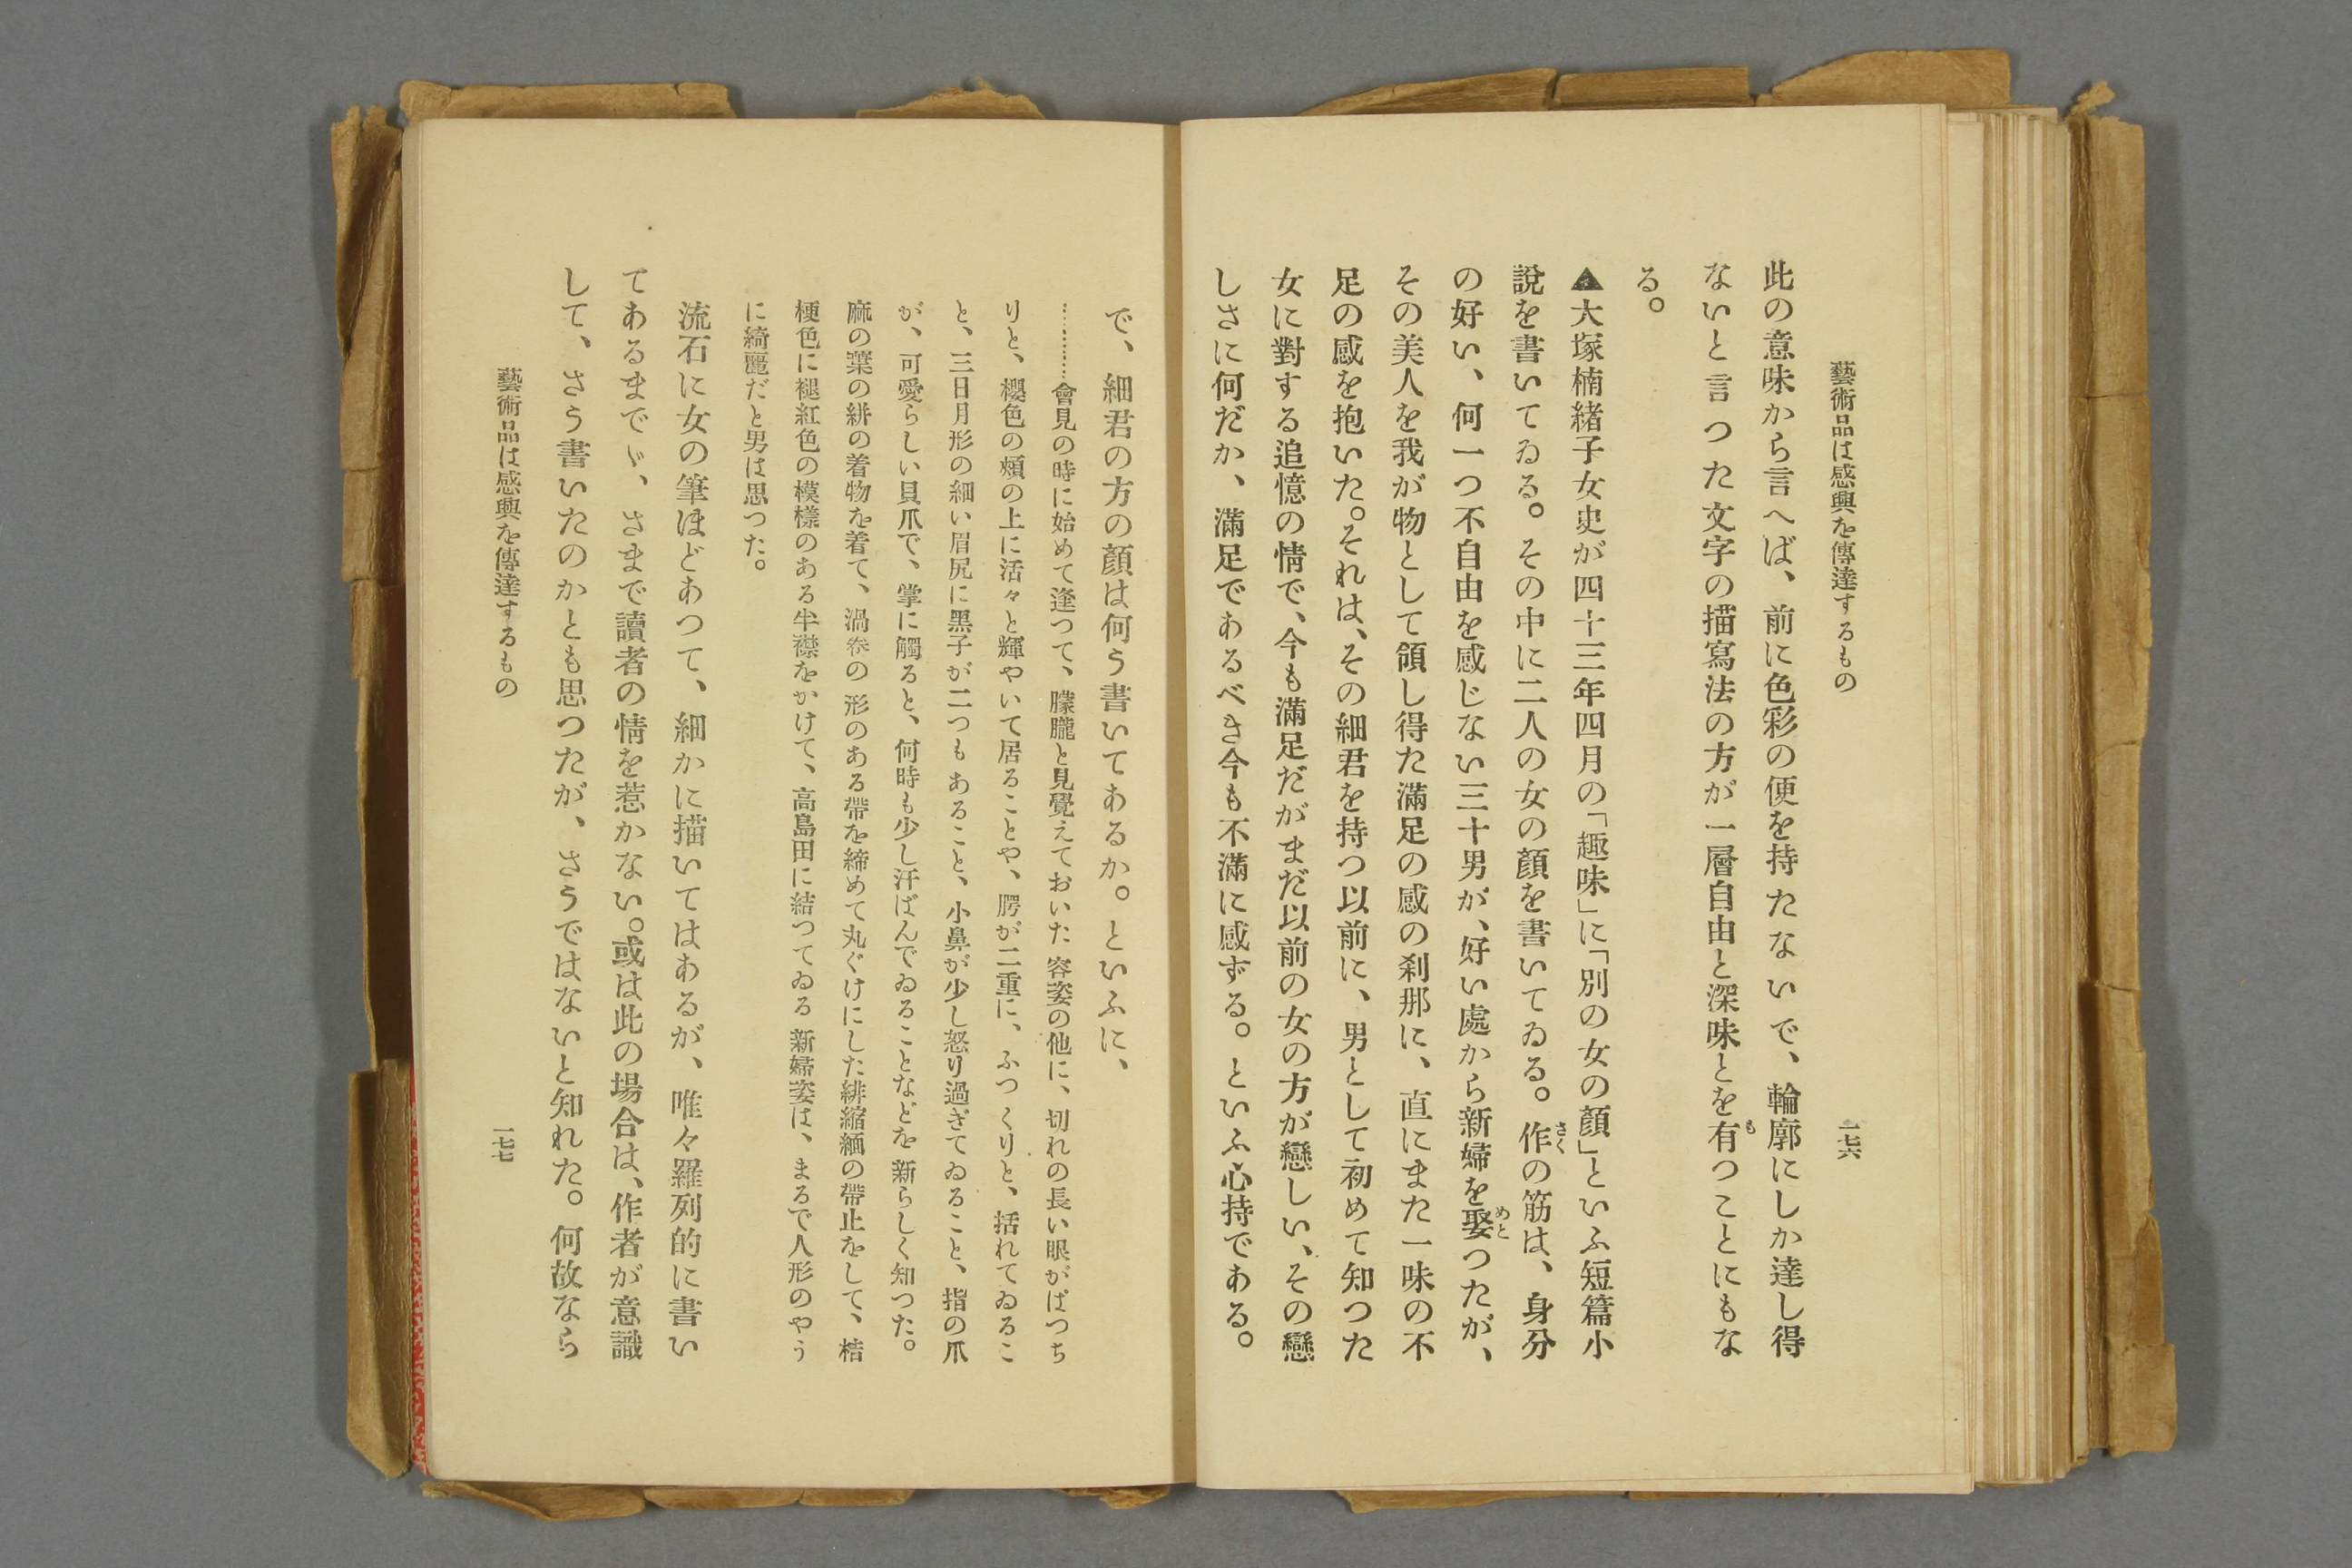 藝術品は感興を傳達するもの
一七六
此の意味から言へば、前に色彩の便を持たないで、輪廓にしか達し得
ないと言つた文字の描寫法の方が一層自由と深味とを有つことにもな
も
る。
▲大塚楠緒子女史が四十三年四月の「趣味」に「別の女の顏」といふ短篇小
説を書いてゐる。その中に二人の女の顏を書いてゐる。作の筋は、身分
さく
の好い、何一つ不自由を感じない三十男が、好い處から新婦を娶つたが、
めと
その美人を我が物として領し得た滿足の感の刹那に、直にまた一味の不
足の感を抱いた。それは、その細君を持つ以前に、男として初めて知つた
女に對する追憶の情で、今も滿足だがまだ以前の女の方が戀しい、その戀
しさに何だか、滿足であるべき今も不滿に感ずる。といふ心持である。
で、細君の方の顏は何う書いてあるか。といふに、
………會見の時に始めて逢つて、朦朧と見覺えておいた容姿の他に、切れの長い眼がぱつち
りと、櫻色の頰の上に活々と輝やいて居ることや、腭が二重に、ふつくりと、括れてゐるこ
と、三日月形の細い眉尻に黑子が二つもあること、小鼻が少し怒り過ぎてゐること、指の爪
が、可愛らしい貝爪で、掌に觸ると、何時も少し汗ばんでゐることなどを新らしく知つた。
麻の葉の絣の着物を着て、渦卷の形のある帶を締めて丸ぐけにした緋縮緬の帶止をして、桔
梗色に褪紅色の模樣のある半襟をかけて、高島田に結つてゐる新婦姿は、まるで人形のやう
に綺麗だと男は思つた。
流石に女の筆ほどあつて、細かに描いてはあるが、唯々羅列的に書い
てあるまでゞ、さまで讀者の情を惹かない。或は此の場合は、作者が意識
して、さう書いたのかとも思つたが、さうではないと知れた。何故なら
藝術品は感興を傳達するもの
一七七